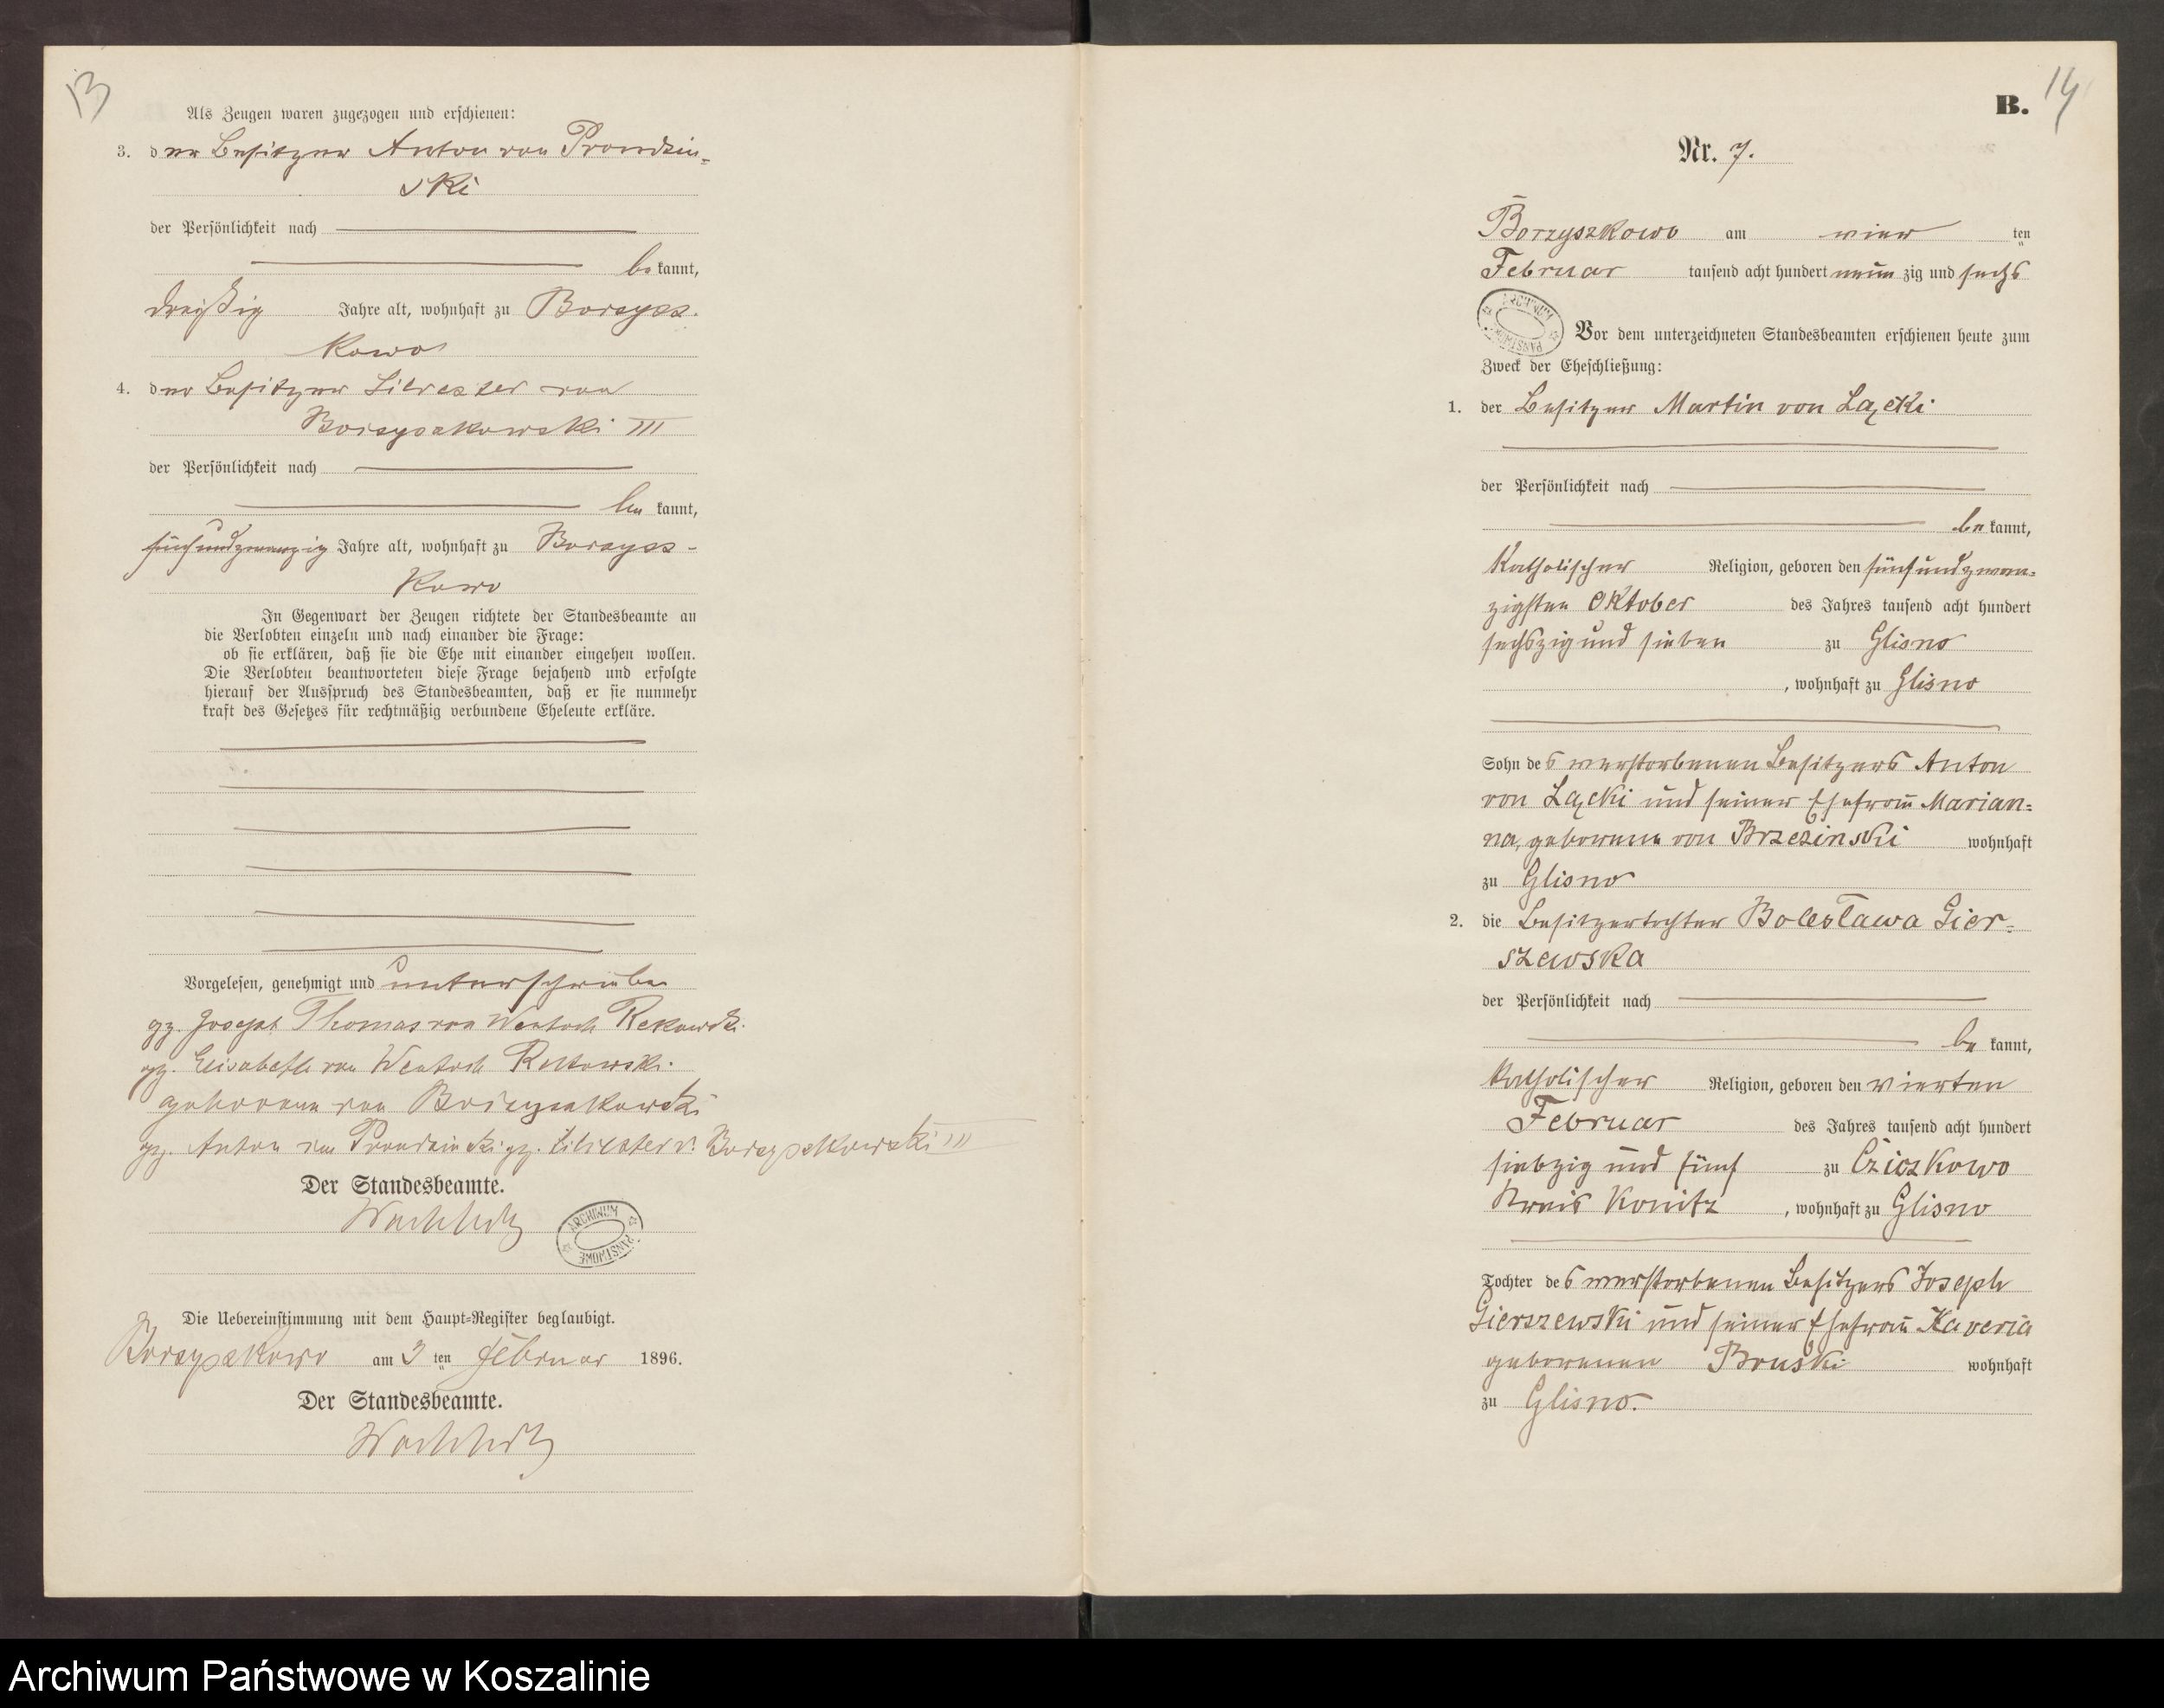 13
Als Zeugen waren zugezogen und erschienen:
3. der Besitzer Anton von Prondzin-
ski
der Persönlichkeit nach
be kannt,
dreißig Jahre alt, wohnhaft zu Borzysz-
kowo
4. der Besitzer Silvester von
Borzyszkowski III
der Persönlichkeit nach
be kannt,
fünfundzwanzig Jahre alt, wohnhaft zu Borzysz-
kowo
In Gegenwart der Zeugen richtete der Standesbeamte an
die Verlobten einzeln und nach einander die Frage:
ob sie erklären, daß sie die Ehe mit einander eingehen wollen.
Die Verlobten beantworteten diese Frage bejahend und erfolgte
hierauf der Ausspruch des Standesbeamten, daß er sie nunmehr
kraft des Gesetzes für rechtmäßig verbundene Eheleute erkläre.
Vorgelesen, genehmigt und unterschrieben
gz. Joseph Thomas von Wentoch Rekowski
gz. Elisabeth von Wentoch Rekowski
geborene von Borzyszkowski
gz. Anton von Prondzinski gz. Silvester v. Borzyszkowski III
Der Standesbeamte.
ARCHIWUM PAŃSTWOWE
Die Uebereinstimmung mit dem Haupt-Register beglaubigt.
Borzyszkowo am 3 ten Februar 1896.
Der Standesbeamte.
B. 14
Nr. 7.
Borzyszkowo am vier ten
Februar tausend acht hundert neun zig und sechs
ARCHIWUM PAŃSTWOWE
Vor dem unterzeichneten Standesbeamten erschienen heute zum
Zweck der Eheschließung:
1. der Besitzer Martin von Łącki
der Persönlichkeit nach
be kannt,
katholischer Religion, geboren den fünfundzwan-
zigsten Oktober des Jahres tausend acht hundert
sechszig und sieben zu Glisno
, wohnhaft zu Glisno
Sohn des verstorbenen Besitzers Anton
von Łącki und seiner Ehefrau Marian-
na, geborene von Brzezinski wohnhaft
zu Glisno
2. die Besitzertochter Bolesława Gier-
szewska
der Persönlichkeit nach
be kannt,
katholischer Religion, geboren den vierten
Februar des Jahres tausend acht hundert
siebzig und fünf zu Cziczkowo
Kreis Konitz , wohnhaft zu Glisno
Tochter des verstorbenen Besitzers Joseph
Gierszewski und seiner Ehefrau Xaveria
geborenen Bruski wohnhaft
zu Glisno.
Archiwum Państwowe w Koszalinie